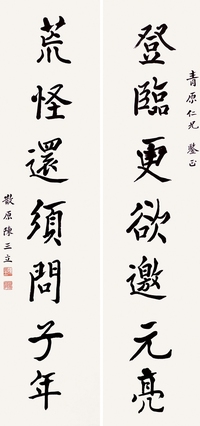 青原仁兄鑒正
登臨更欲邀元亮
荒怪還須問子年
散原陳三立